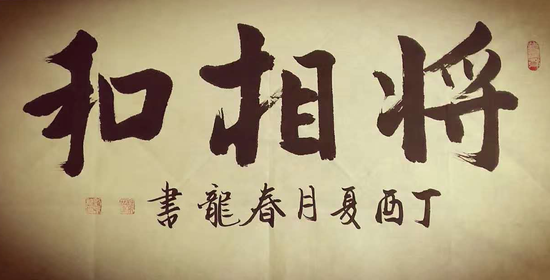 将相和
丁酉夏月春龍書